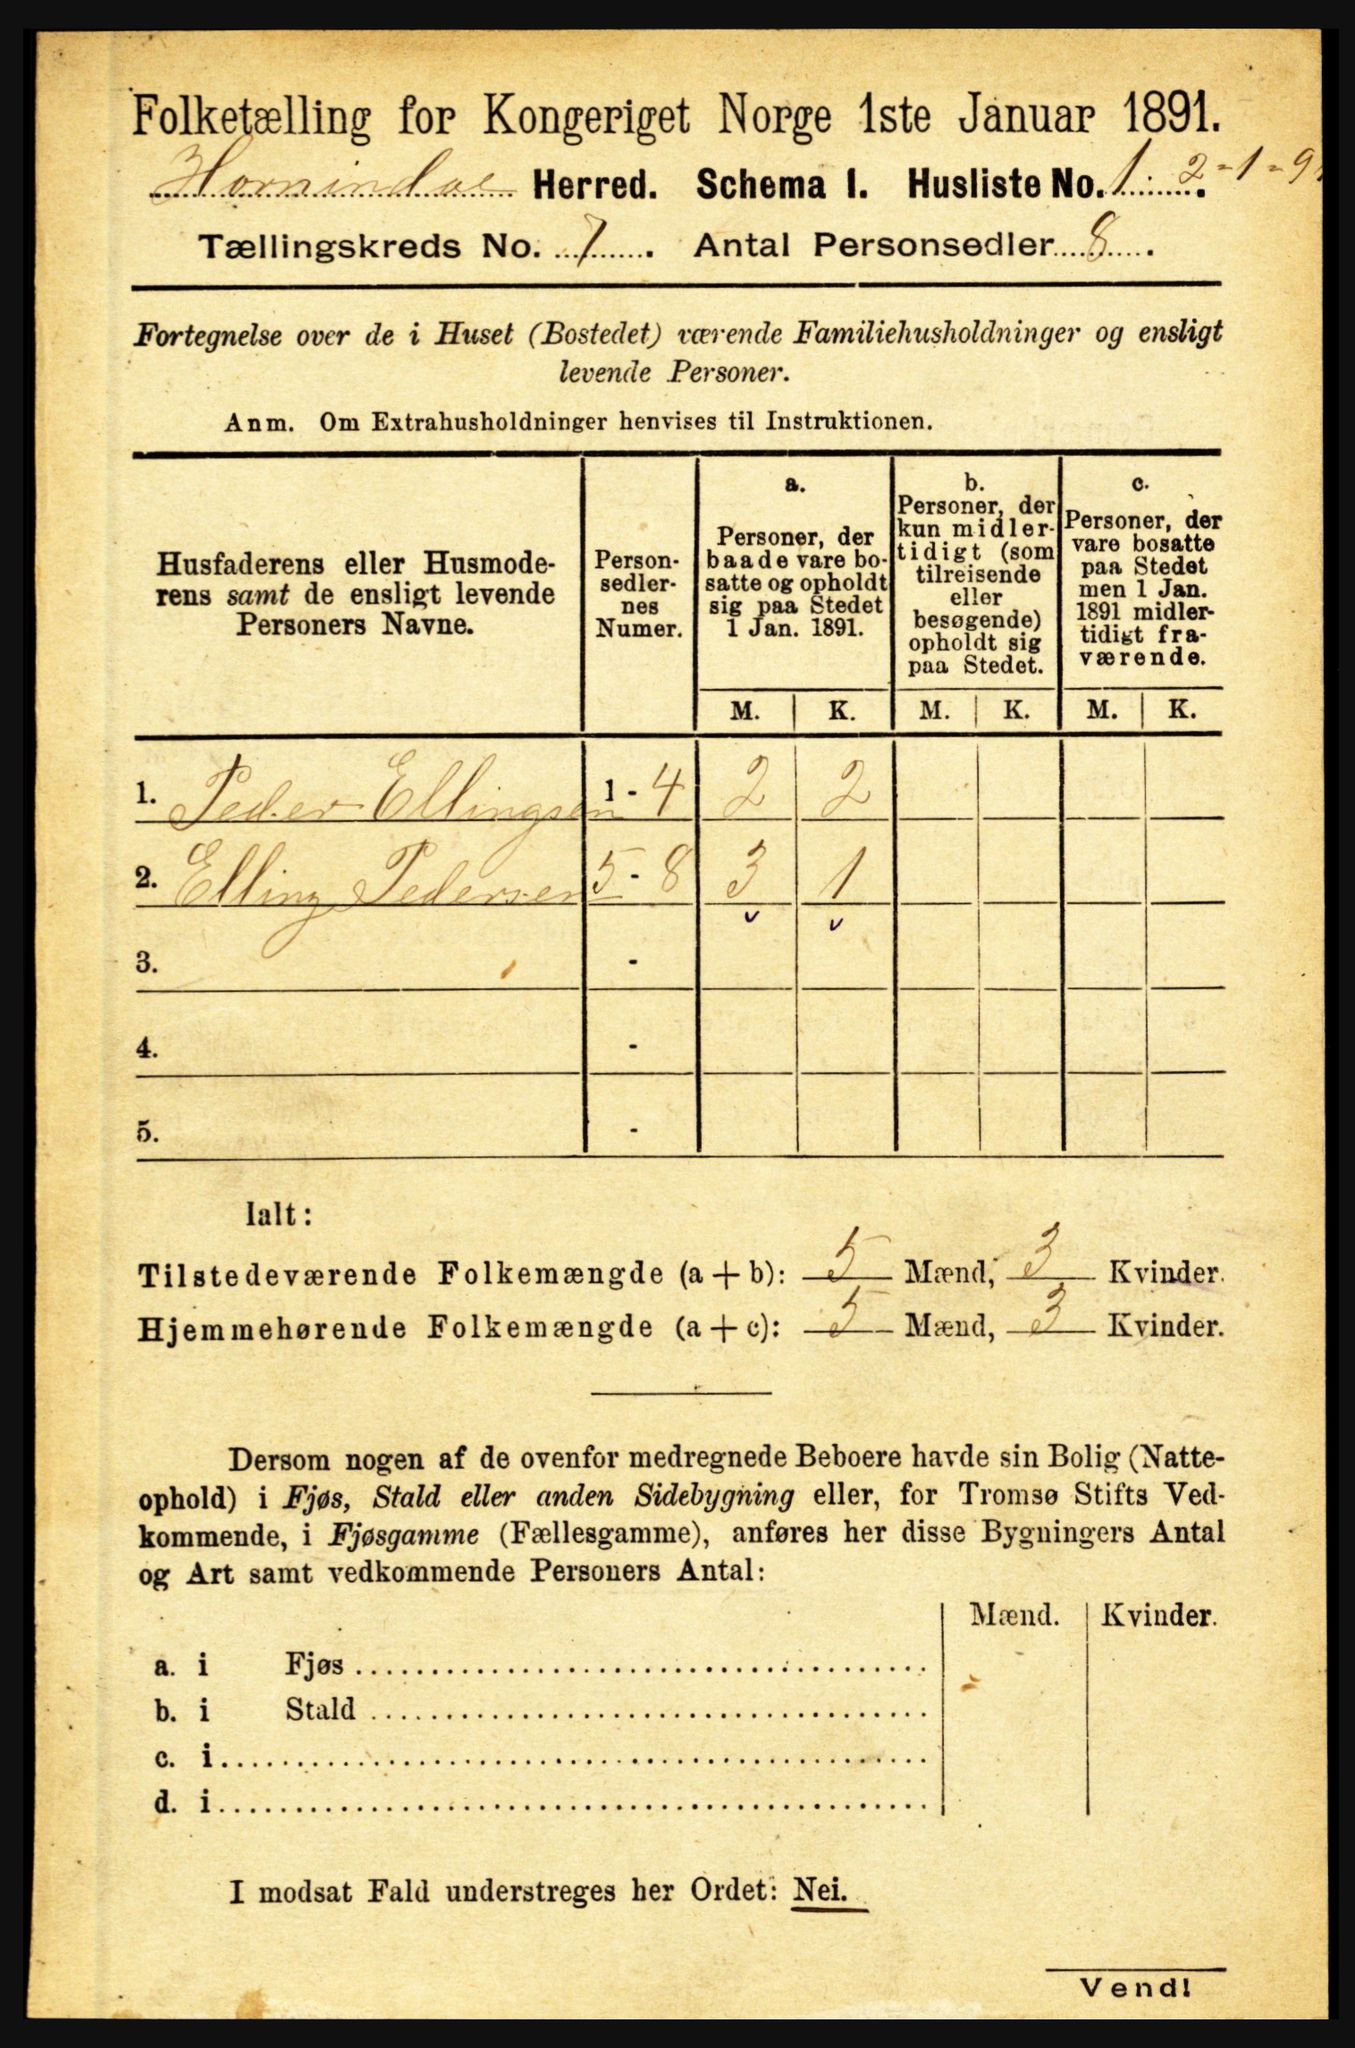 Folketælling for Kongeriget Norge 1ste Januar 1891.
Hornindal Herred. Schema I. Husliste No. 1. 2-1-91
Tællingskreds No. 7. Antal Personsedler 8.
Fortegnelse over de i Huset (Bostedet) værende Familiehusholdninger og ensligt
levende Personer.
Anm. Om Extrahusholdninger henvises til Instruktionen.
Husfaderens eller Husmode-
rens samt de ensligt levende
Personers Navne.
Person-
sedler-
nes
Numer.
a.
Personer, der
baade vare bo-
satte og opholdt
sig paa Stedet
1 Jan. 1891.
b.
Personer, der
kun midler-
tidigt (som
tilreisende
eller
besøgende)
opholdt sig
paa Stedet.
c.
Personer, der
vare bosatte
paa Stedet
men 1 Jan.
1891 midler-
tidigt fra-
værende.
M. K. M. K. M. K.
1. Peder Ellingsen 1-4 2 2
2. Elling Pedersen 5-8 3 1
3. -
4. -
5. -
Ialt:
Tilstedeværende Folkemængde (a + b): 5 Mænd, 3 Kvinder.
Hjemmehørende Folkemængde (a + c): 5 Mænd, 3 Kvinder.
Dersom nogen af de ovenfor medregnede Beboere havde sin Bolig (Natte-
ophold) i Fjøs, Stald eller anden Sidebygning eller, for Tromsø Stifts Ved-
kommende, i Fjøsgamme (Fællesgamme), anføres her disse Bygningers Antal
og Art samt vedkommende Personers Antal:
Mænd. Kvinder.
a. i Fjøs
b. i Stald
c. i
d. i
I modsat Fald understreges her Ordet: Nei.
Vend!